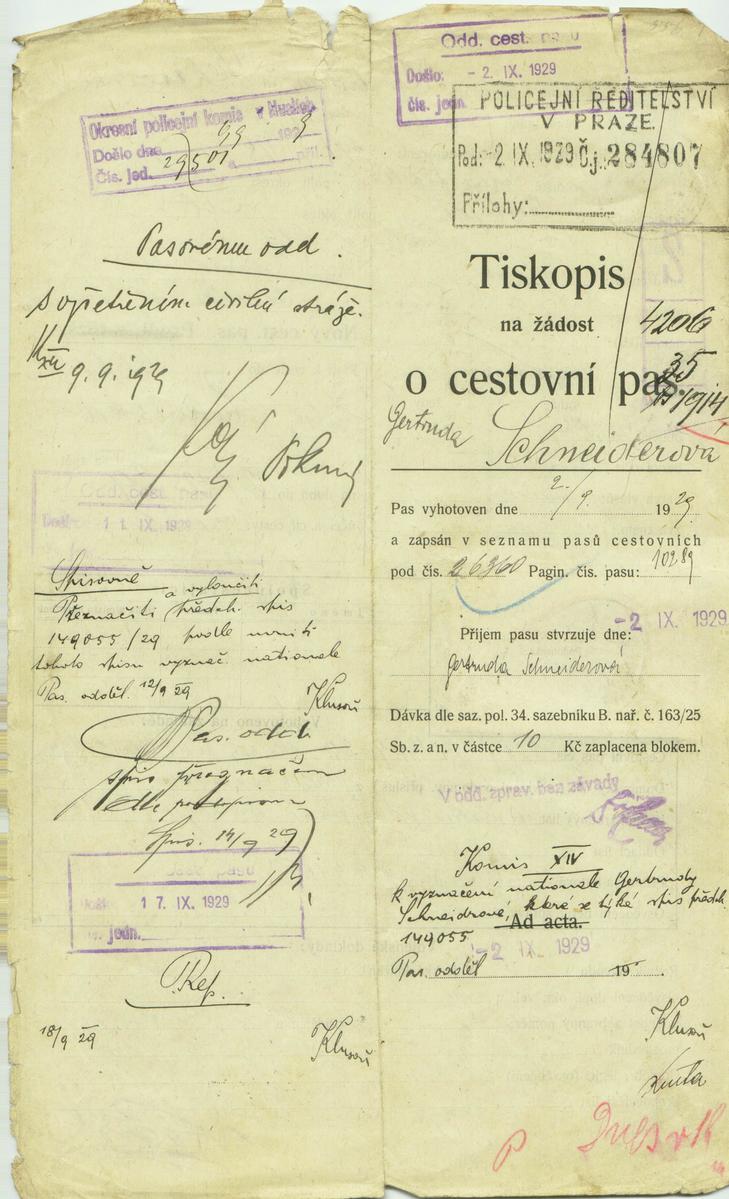 Okresní policejní komis v Nuslích
Došlo dne
Čís. jed. 29501
Pasovému odd.
s vyšetřením civilní stráže.
9. 9. 1929
Odd. cest. pasů
Došlo: 11. IX. 1929
Spisovně
a vyloučiti
Přeznačiti předch. spis
149055/29 podle
tohoto spisu vyznač. nationale
Pas. odděl. 12/9 29
Pas. odd.
spis přeznačen
dle
Spis. 14/9 29
17. IX. 1929
čís. jedn.
Prep.
18/9 29
Odd. cest. pasů
Došlo: - 2. IX. 1929
čís. jedn.
POLICEJNÍ ŘEDITELSTVÍ
V PRAZE.
Pod: -2. IX. 1929 Čj. 284807
Přílohy:
Tiskopis
na žádost
4206
35
o cestovní pas.
Gertruda Schneiderová
Pas vyhotoven dne 2/9 1929
a zapsán v seznamu pasů cestovních
pod čís. 26360 Pagin. čís. pasu: 10289
-2 IX. 1929
Příjem pasu stvrzuje dne:
Gertruda Schneiderová
Dávka dle saz. pol. 34. sazebníku B. nař. č. 163/25
Sb. z. a n. v částce 10 Kč zaplacena blokem.
V odd. zprav. bez závady
Komis XIV
k vyznačení nationale Gertrudy
Schneidrové, které se týká spis předch.
149055
Ad acta.
-2 IX. 1929
Pas. odděl 19
P